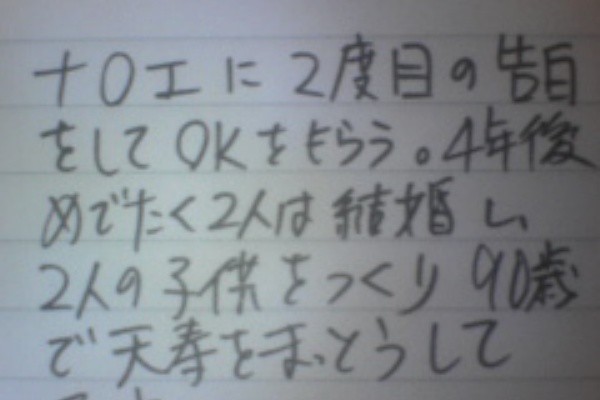 ナOエに2度目の告白
をしてOKをもらう。4年後
めでたく2人は結婚し
2人の子供をつくり90歳
で天寿をまっとうして